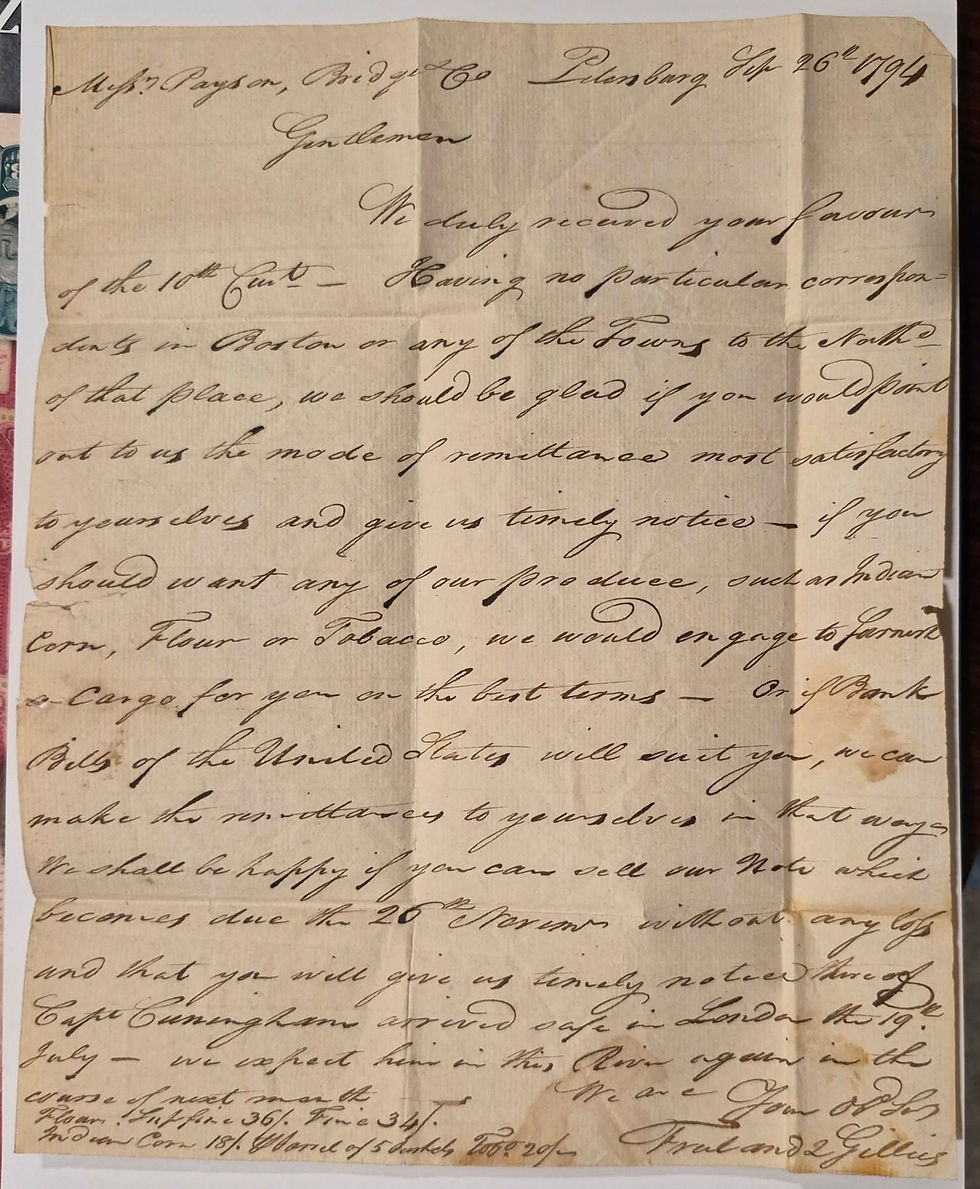 Messrs Payson, Bridge & Co Petersburg Sep 26th 1794
Gentlemen
We duly received your favour
of the 10th Curt — Having no particular correspon=
dents in Boston or any of the Towns to the Northd
of that place, we should be glad if you would point
out to us the mode of remittance most satisfactory
to yourselves and give us timely notice — if you
should want any of our produce, such as Indian
Corn, Flour or Tobacco, we would engage to furnish
a Cargo for you on the best terms — Or if Bank
Bills of the United States will suit you, we can
make the remittances to yourselves in that way
We shall be happy if you can sell our Note which
becomes due the 26th Novemr without any loss
and that you will give us timely notice thereof
Capt Cuningham arrived safe in London the 19th
July — we expect him in this River again in the
course of next month
We are Your Obt Sts
Flour Supfine 36/. Fine 34/.
Indian Corn 18/. Barrel of 5 bushels Tobo 20/-
Freeland & Gillies